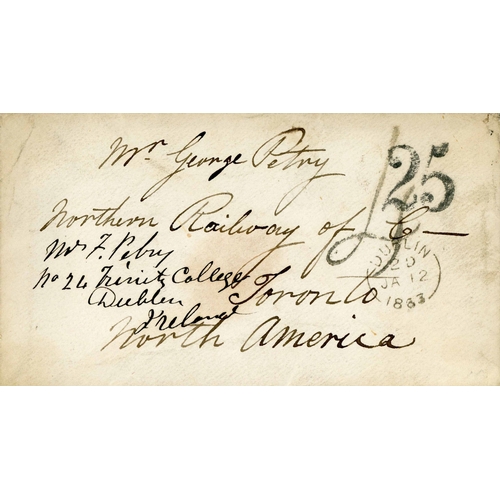 Mr George Petry
25
Northern Railway of C—
Mrs F. Petry
No 24 Trinity College
Dublin
Ireland
Toronto
North America
DUBLIN
2D
JA 12
1863